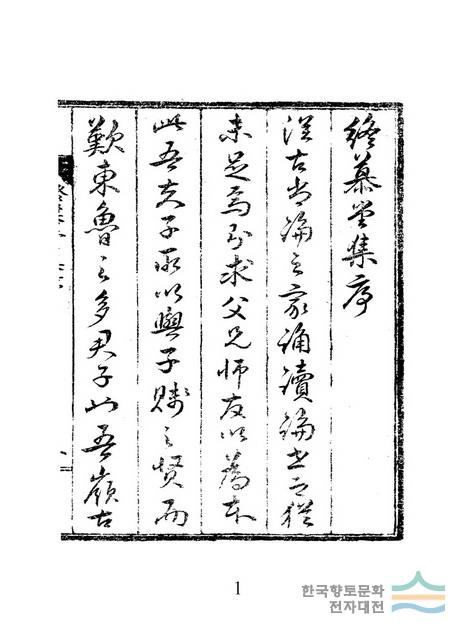 終慕堂集序
從古尙論之家誦讀論世之猶
未足焉求父兄師友以為本
此吾夫子所以與子賤之賢而
歎東魯之多君子也吾嶺古
1
한국향토문화
전자대전